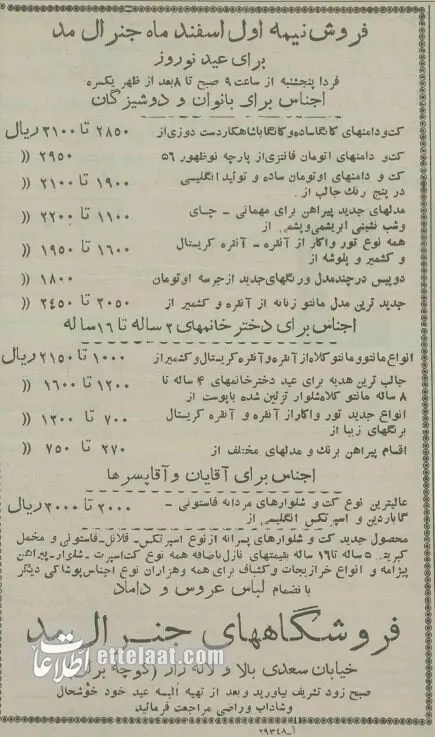 فروش نیمه اول اسفند ماه جنرال مد
برای عید نوروز
فردا پنجشنبه از ساعت ۹ صبح تا ۸ بعد از ظهر یکسره
اجناس برای بانوان و دوشیزگان
کت و دامنهای کانگا ساده و کانگا باشاهکار دست دوزی از ۲۸۵۰ تا ۳۱۰۰ ریال
کت و دامنهای اتومان فانتزی از پارچه نوظهور ۵۶ ۲۹۵۰ ((
کت و دامنهای اوتومان ساده و تولید انگلیسی
در پنج رنگ جالب از ۱۹۰۰ تا ۲۱۰۰ ((
مدلهای جدید پیراهن برای مهمانی - چای
وشب نشینی ابریشمی و پشمی از ۱۱۰۰ تا ۲۲۰۰ ((
همه نوع تور واکار از آنقره - آنقره کریستال
و کشمیر و پلوشه از ۱۶۰۰ تا ۱۹۵۰ ((
دوپیس در چند مدل و رنگهای جدید از جرسه اوتومان ۱۸۰۰ ((
جدید ترین مدل مانتو زنانه از آنقره و کشمیر از ۲۰۵۰ تا ۲۴۵۰ ((
اجناس برای دختر خانمهای ۲ ساله تا ۱۶ ساله
انواع مانتو و مانتو کلاه از آنقره و آنقره کریستال و کشمیر از ۱۰۰۰ تا ۲۱۵۰ ریال
جالب ترین هدیه برای عید دختر خانمهای ۴ ساله تا
۸ ساله مانتو کلاه شلوار تزئین شده با پوست از ۱۲۰۰ تا ۱۶۰۰ ((
انواع جدید تور واکار از آنقره و آنقره کریستال
برنگهای زیبا از ۷۰۰ تا ۱۲۰۰ ((
اقسام پیراهن برنگ و مدلهای مختلف از ۲۷۰ تا ۷۵۰ ((
اجناس برای آقایان و آقا پسرها
عالیترین نوع کت و شلوارهای مردانه فاستونی -
گاباردین و اسپرتکس انگلیسی از ۲۰۰۰ تا ۳۰۰۰ ریال
محصول جدید کت و شلوارهای پسرانه از نوع اسپرتکس - فلانل - فاستونی و مخمل
کبریتی ۵ ساله تا ۱۶ ساله بقیمتهای نازل باضافه همه نوع کت اسپرت - شلوار - پیراهن
پیژامه و انواع خرازیجات و کشباف برای همه وهزاران نوع اجناس پوشاکی دیگر
با نضمام لباس عروس و داماد
فروشگاههای جنرال مد
خیابان سعدی بالا و لاله زار (کوچه
صبح زود تشریف بیاورید و بعد از تهیه البسه عید خود خوشحال
وشاداب وراضی مراجعت فرمائید
آ-۲۹۳۴۸
اطلاعات ettelaat.com